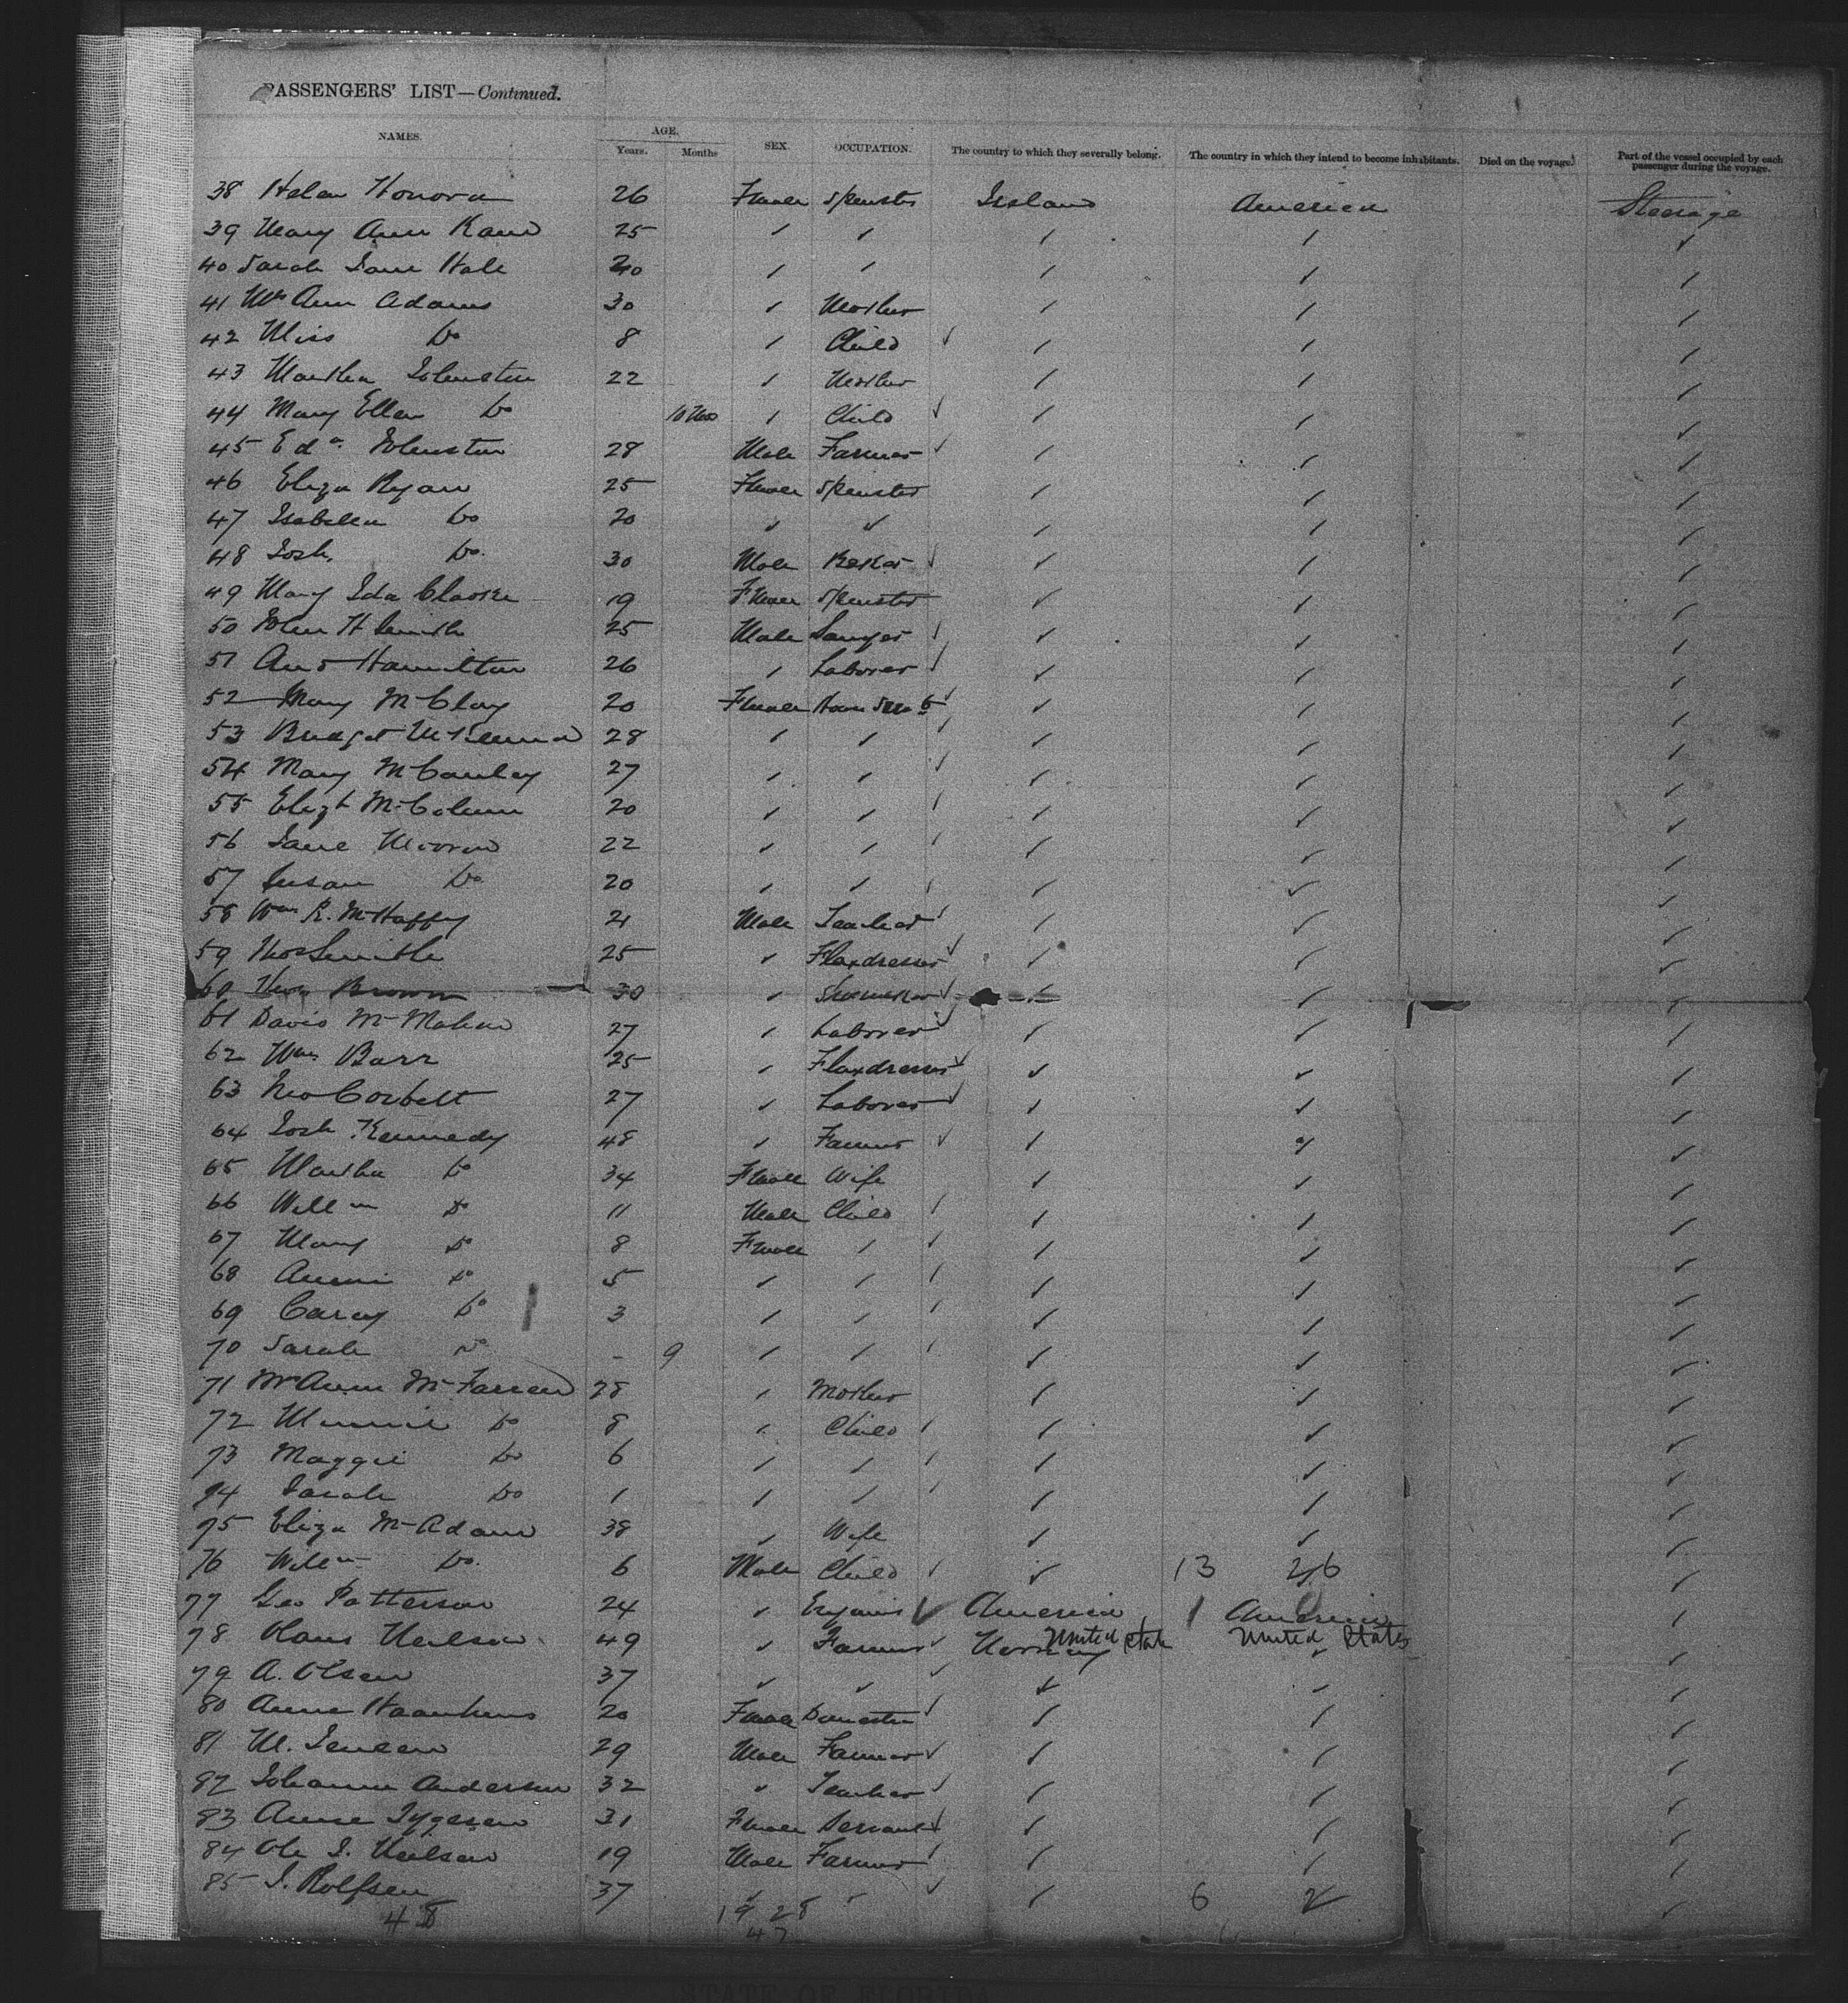 PASSENGERS' LIST—Continued.
NAMES. AGE. Years. Months SEX. OCCUPATION. The country to which they severally belong. The country in which they intend to become inhabitants. Died on the voyage. Part of the vessel occupied by each passenger during the voyage.
38 Helen Honora 26 Female Spinster Ireland America Steerage
39 Mary Ann Kane 25 " " " " "
40 Sarah Jane Hale 20 " " " " "
41 Mrs Ann Adams 30 " Mother " " "
42 Miss Do 8 " Child " " "
43 Martha Johnston 22 " Mother " " "
44 Mary Ellen Do 10 Mos " Child " " "
45 Edw. Johnston 28 Male Farmer " " "
46 Eliza Ryan 25 Female Spinster " " "
47 Isabella Do 20 " " " " "
48 Josh. Do. 30 Male Baker " " "
49 Mary Ida Clarke 19 Female Spinster " " "
50 John H Smith 25 Male Sawyer " " "
51 And Hamilton 26 " Laborer " " "
52 Mary McClay 20 Female House Servt " " "
53 Bridget McKenna 28 " " " " "
54 Mary McCauley 27 " " " " "
55 Elizt McColum 20 " " " " "
56 Jane Moore 22 " " " " "
57 Susan Do 20 " " " " "
58 Wm R. McHaffy 21 Male Teacher " " "
59 Thos Smith 25 " Flaxdresser " " "
60 Brown 30 " Shoemaker " " "
61 David McMahon 27 " Laborer " " "
62 Wm Barr 25 " Flaxdresser " " "
63 Corbett 27 " Laborer " " "
64 Josh Kennedy 48 " Farmer " " "
65 Martha Do 34 Female Wife " " "
66 Willm Do 11 Male Child " " "
67 Mary Do 8 Female " " " "
68 Annie Do 5 " " " " "
69 Carey Do 3 " " " " "
70 Sarah Do - 9 " " " " "
71 Mrs Annie McFarren 28 " Mother " " "
72 Minnie Do 8 " Child " " "
73 Maggie Do 6 " " " " "
74 Sarah Do 1 " " " " "
75 Eliza McAdam 38 " Wife " " "
76 Willm Do. 6 Male Child " 13 26 "
77 Geo Patterson 24 " Engineer America 1 America "
78 Hans Neilson 49 " Farmer Norway United State United States "
79 A. Olsen 37 " " " " "
80 Anne 20 Female Domestic " " "
81 M. Jensen 29 Male Farmer " " "
82 Johanne Anderson 32 " Teacher " " "
83 Anne Tygesen 31 Female Servant " " "
84 Ole J. Neilsen 19 Male Farmer " " "
85 J. Rolfsen 37 " " " 6 2 "
48 19 28
47
STATE OF FLORIDA